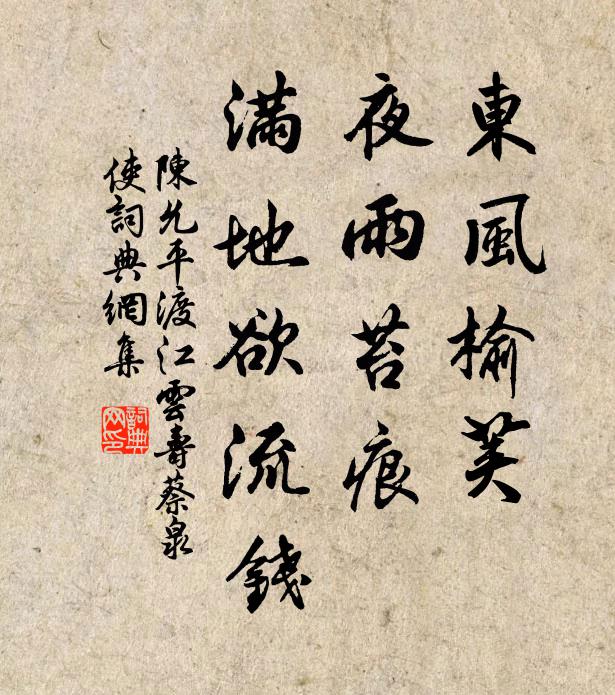 東風榆荚
夜雨苔痕
滿地欲流錢
陳允平渡江雲壽蔡泉
使詞典網集
詞典網印